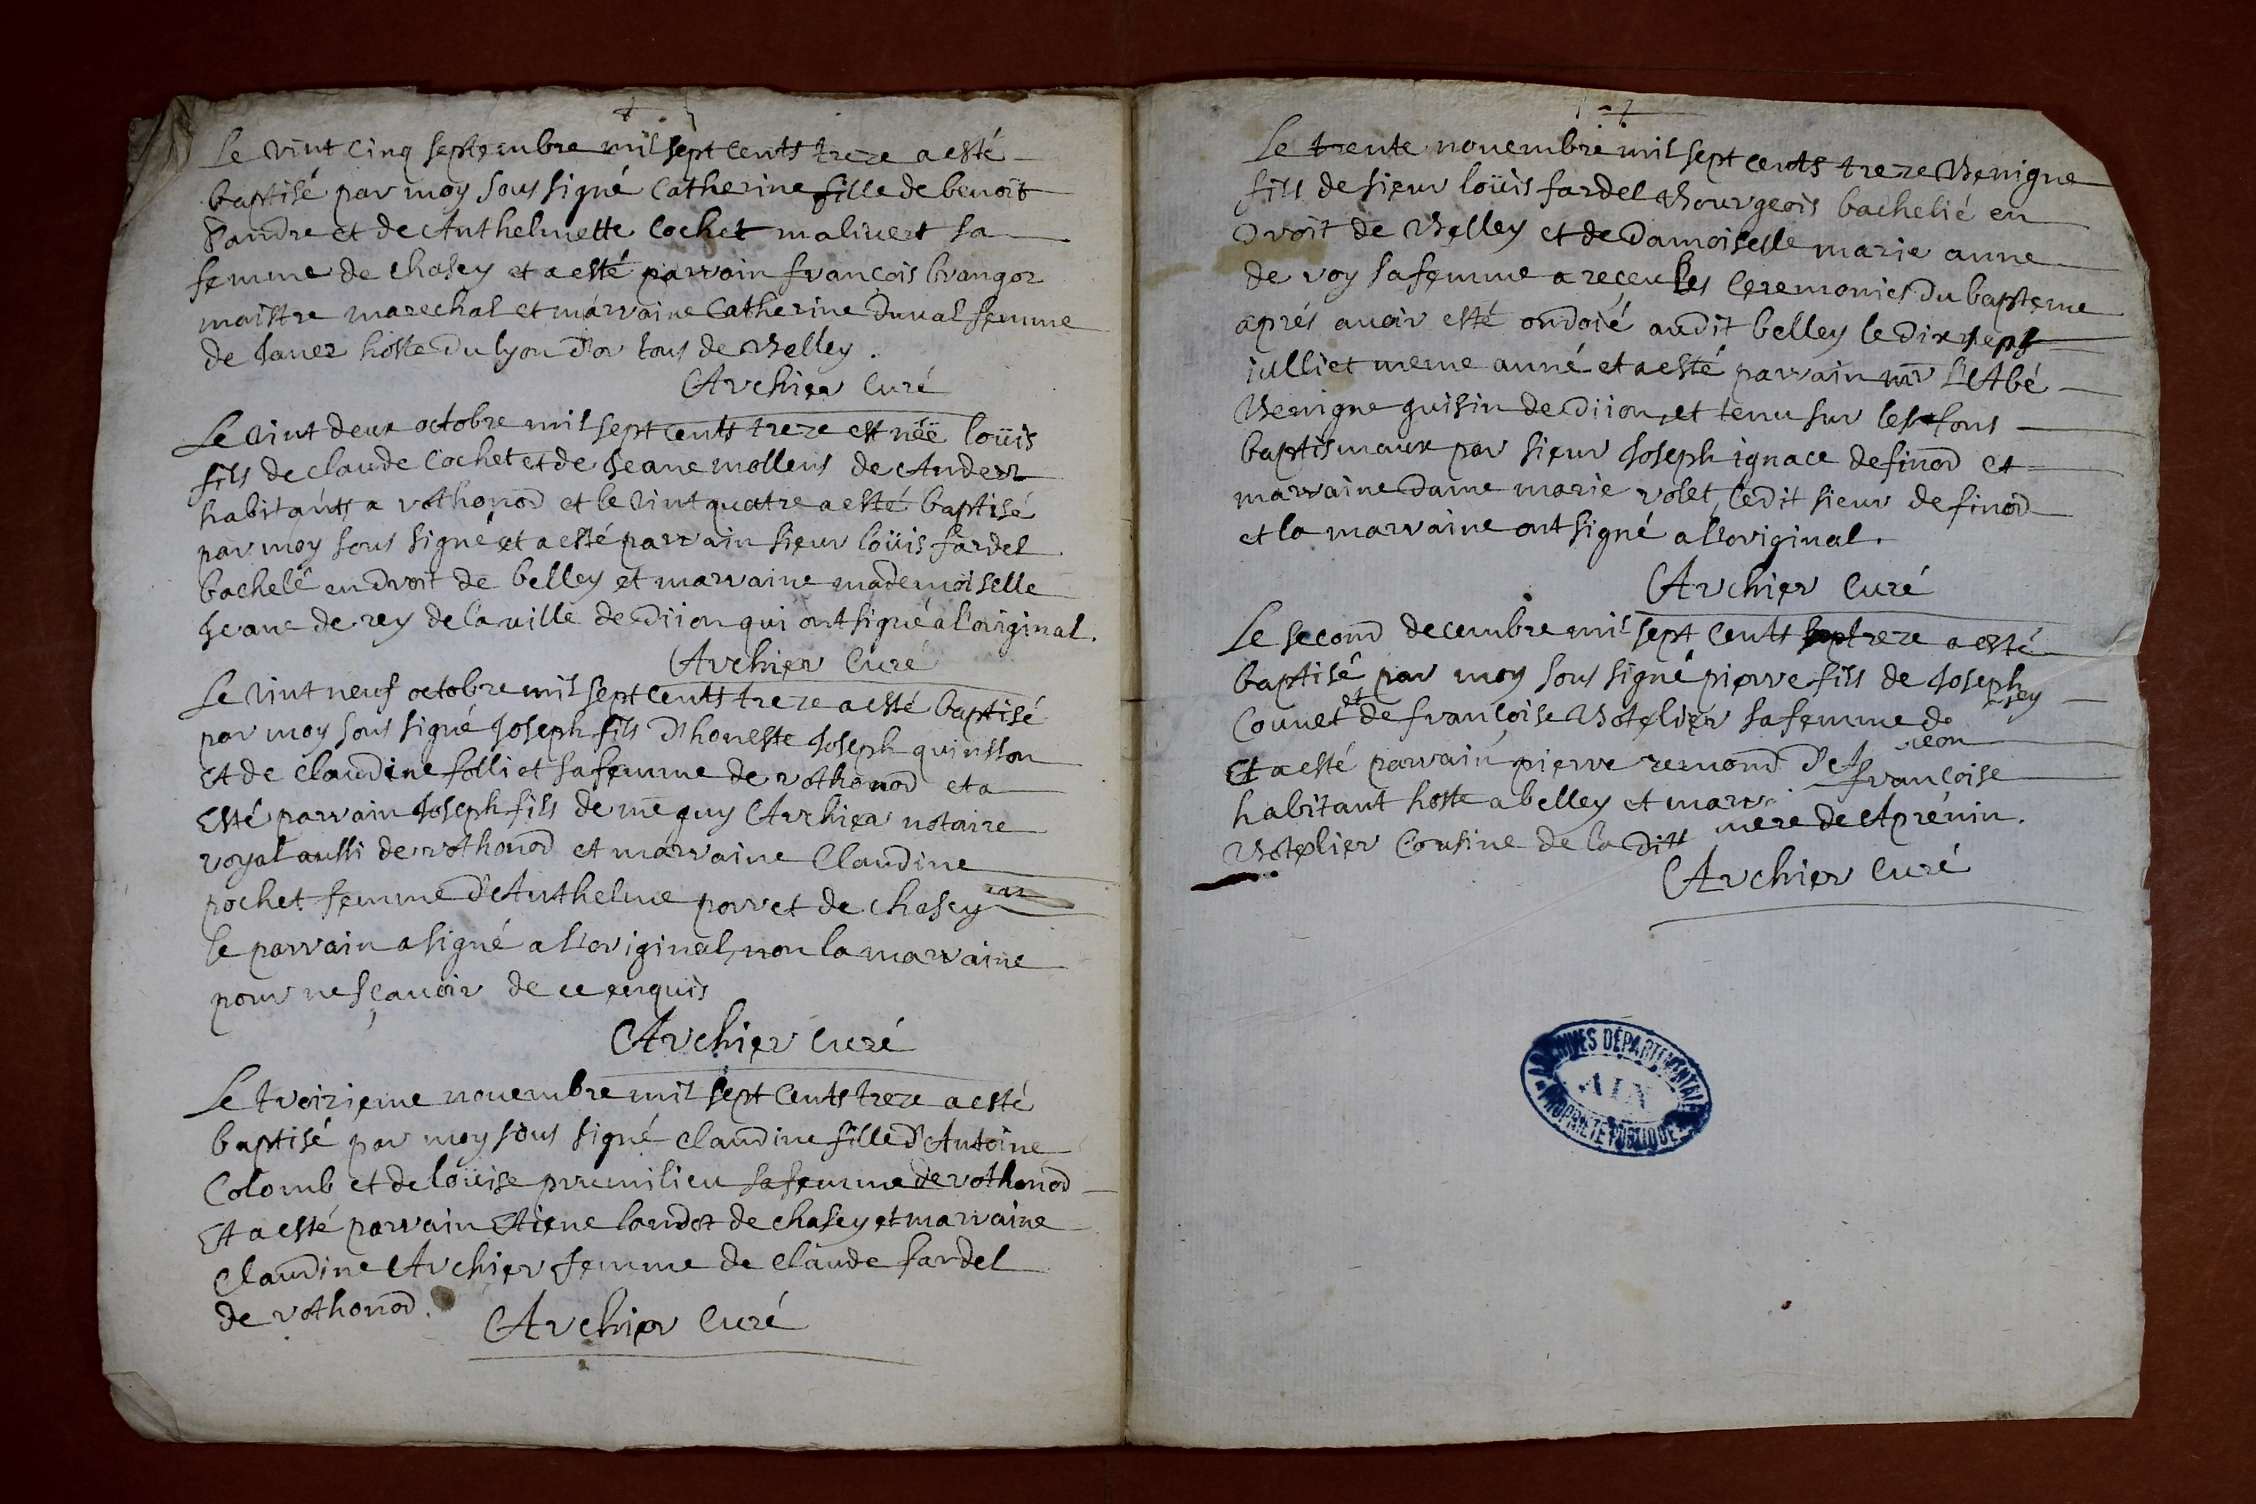 Le vint cinq septembre mil sept cents treze a esté
baptisé par moy sous signé Catherine fille de benoit
Pandre et de Anthelmette Cochet malivert sa
femme de chasey et a esté parrain francois brangor
maistre marechal et marraine Catherine Duval femme
de Janez hoste du lyon d'or tous de Belley.
Archier Curé
Le vint deux octobre mil sept cents treze est néé loüis
fils de claude Cochet et de Jeane mollens de Andert
habitants a rothonod et le vint quatre a esté baptisé
par moy sous signé et a esté parrain sieur loüis fardel
bachelé en droit de belley et marraine mademoiselle
Jeane de rey de la ville de Diion qui ont signé a l'original.
Archier Curé
Le vint neuf octobre mil sept cents treze a esté baptisé
par moy sous signé Joseph fils d'honeste Joseph quinsson
et de Claudine folliet sa femme de rothonod et a
Esté parrain Joseph fils de me guy Archier notaire
royal aussi de rothonod et marraine Claudine
pochet femme d'Anthelme porret de chasey
le parrain a signé a l'original, non la marraine
pour ne sçavoir de ce enquis
Archier Curé
Le troizieme novembre mil sept cents treze a esté
baptisé par moy sous signé Claudine fille d'Antoine
Colomb et de loüise prumilieu sa femme de rothonod
Et a esté parrain Etiene landoz de chasey et marraine
Claudine Archier femme de Claude fardel
de rothonod.
Archier Curé
Le trente novembre mil sept cents treze Benigne
fils de sieur loüis fardel Bourgeois bachelié en
Droit de Belley et de Damoiselle marie anne
de roy sa femme a receu les Ceremonies du bapteme
aprés avoir esté ondoié audit belley le dix sept
iulliet meme anné et a esté parrain mr l'Abé
Benigne guisin de Diion, et tenu sur les fons
baptismaux par sieur Joseph ignace de finod et
marraine Dame marie rolet, ledit sieur de finod
et la marraine ont signé a l'original.
Archier Curé
Le second decembre mil sept cents treze a esté
baptisé par moy sous signé pierre fils de Joseph
Counet et de francoise Botelier sa femme de sey
Et a esté parrain pierre remond d'A reon
habitant hoste a belley et marr francoise
Botelier Cousine de la ditt mere de Aprémin.
Archier Curé
ARCHIVES DÉPARTEMENTALES
AIN
PROPRIÉTÉ PUBLIQUE